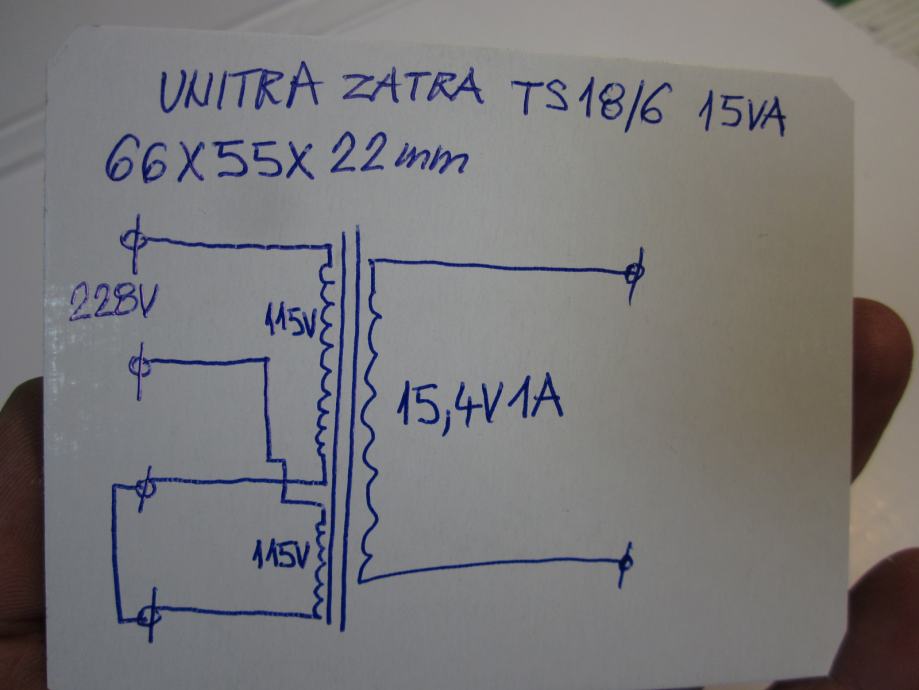 UNITRA ZATRA TS18/6 15VA
66X55X22mm
228V
115V
15,4V 1A
115V